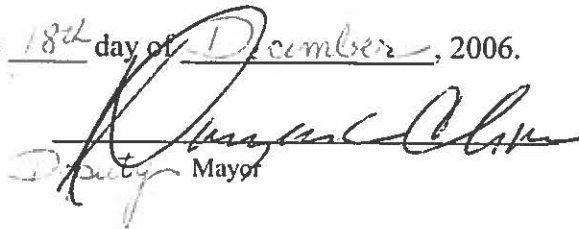 18th day of December, 2006.
Deputy Mayor